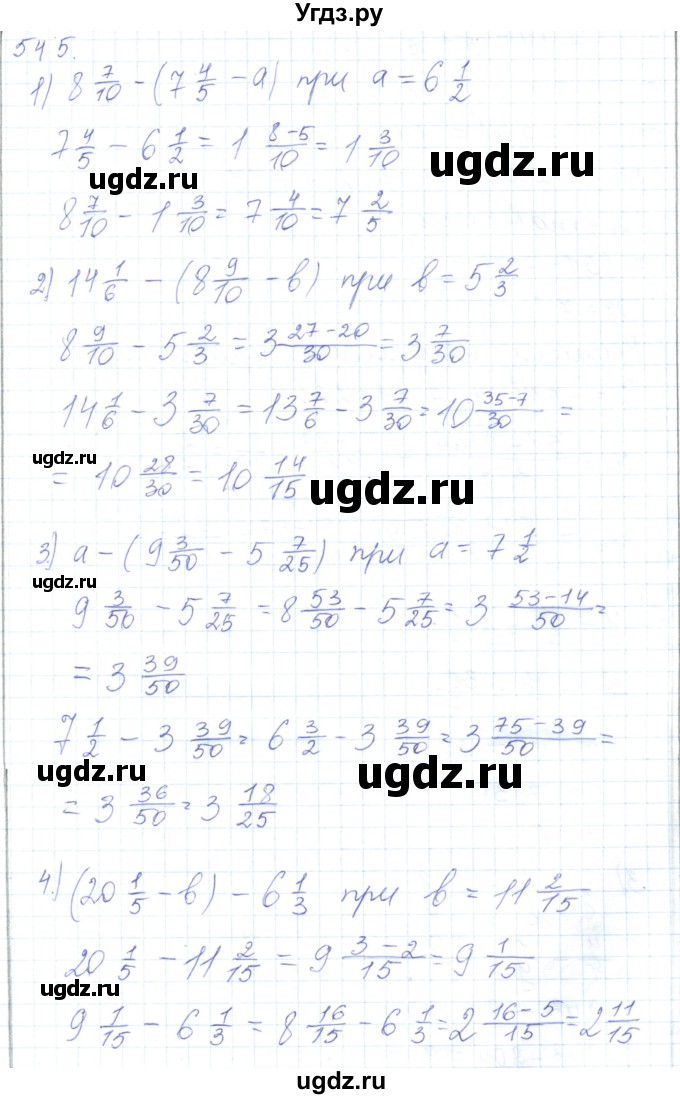 Угдз.ру
545.
1) 8 7/10 - (7 4/5 - a) при a = 6 1/2
7 4/5 - 6 1/2 = 1 (8-5)/10 = 1 3/10
ugdz.ru
ugdz.ru
8 7/10 - 1 3/10 = 7 4/10 = 7 2/5
2) 14 1/6 - (8 9/10 - в) при в = 5 2/3
8 9/10 - 5 2/3 = 3 (27-20)/30 = 3 7/30
14 1/6 - 3 7/30 = 13 7/6 - 3 7/30 = 10 (35-7)/30 =
ugdz.ru
= 10 28/30 = 10 14/15
ugdz.ru
3) a - (9 3/50 - 5 7/25) при a = 7 1/2
ugdz.ru
9 3/50 - 5 7/25 = 8 53/50 - 5 7/25 = 3 (53-14)/50 =
= 3 39/50
7 1/2 - 3 39/50 = 6 3/2 - 3 39/50 = 3 (75-39)/50 =
ugdz.ru
ugdz.ru
= 3 36/50 = 3 18/25
4) (20 1/5 - в) - 6 1/3 при в = 11 2/15
20 1/5 - 11 2/15 = 9 (3-2)/15 = 9 1/15
ugdz.ru
9 1/15 - 6 1/3 = 8 16/15 - 6 1/3 = 2 (16-5)/15 = 2 11/15
ugdz.ru